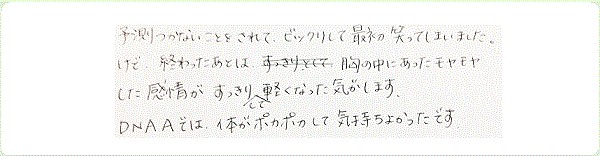 予測つかないことをされて、ビックリして最初笑ってしまいました。
けど、終わったあとは、すっきりとして、胸の中にあったモヤモヤ
した感情がすっきりして軽くなった気がします。
DNAAでは、体がポカポカして気持ちよかったです